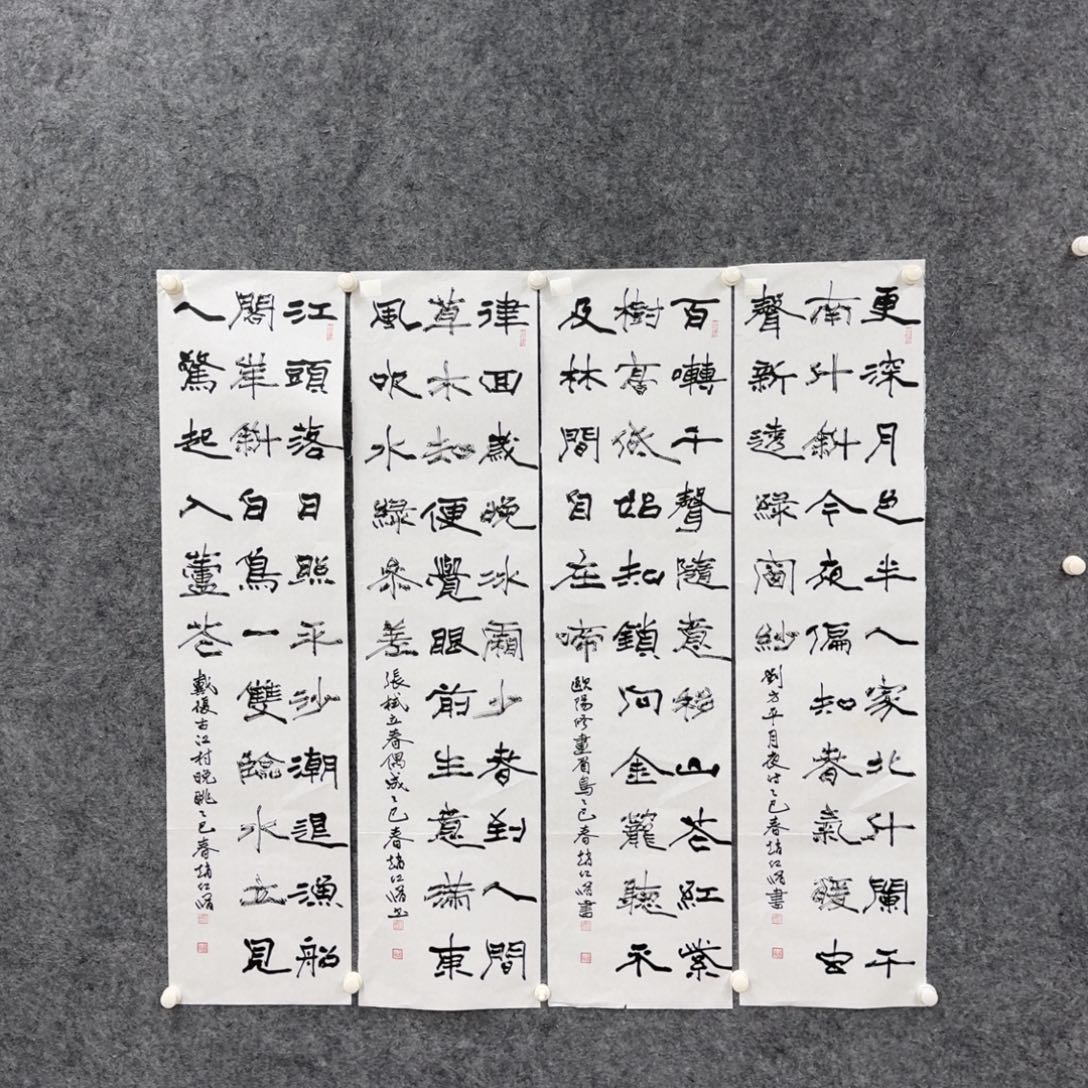 更深月色半人家北斗闌干
南斗斜今夜偏知春氣暖虫
聲新透綠窗紗
劉方平月夜詩乙巳春趙江書
百囀千聲隨意移山花紅紫
樹高低始知鎖向金籠聽不
及林間自在啼
歐陽修畫眉鳥乙巳春趙江書
律回歲晚冰霜少春到人間
草木知便覺眼前生意滿東
風吹水綠參差
張栻立春偶成乙巳春趙江書
江頭落日照平沙潮退漁船
閣岸斜白鳥一雙臨水立見
人驚起入蘆花
戴復古江村晚眺乙巳春趙江